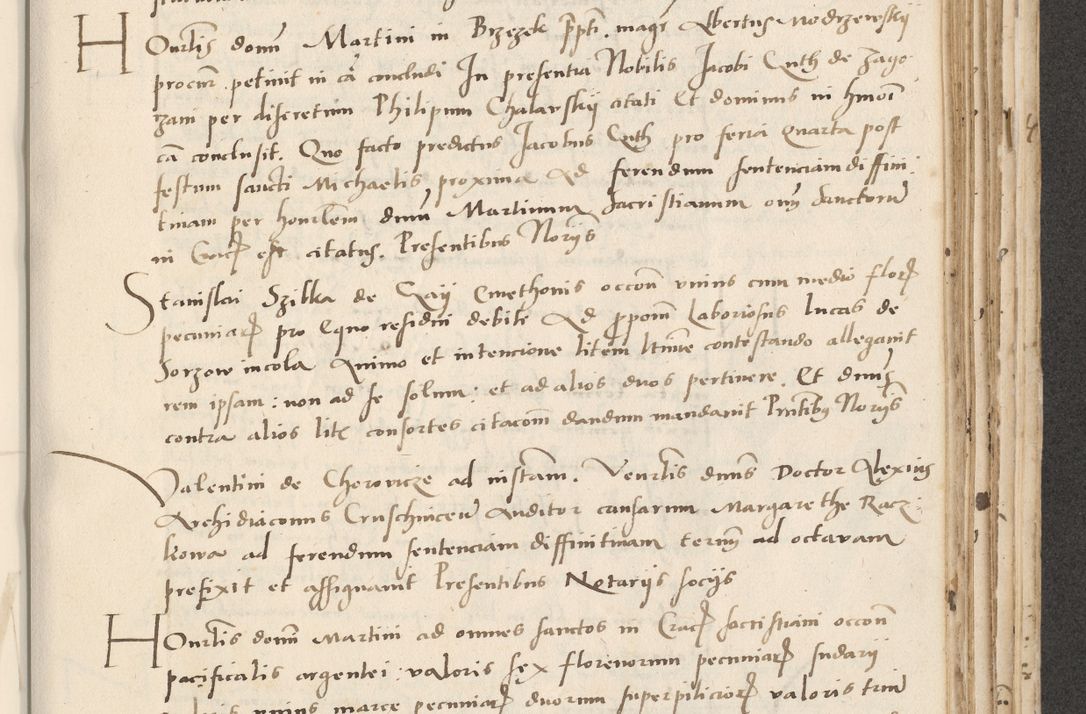 Honrlis domi Martini in Brzezek prpti. magr Albertus Modrzewskij
procur. petivit in ca concludi In presentia Nobilis Jacobi Cuth de Zago
zani per discretum Philipum Chalavskij citati Et dominus in hmoi
ca conclusit. Quo facto predictus Jacobus Cuth pro feria quarta post
festum sancti Michaelis proxima Ad ferendum sentenciam diffini
tivam per honrlem dnum Martinum Sacristianum omn Sanctoru
in Crac est citatus. Presentibus Norijs
Stanislai Szibka de Gaij Cmethonis occon unius cum medio flor
pecuniar pro Equo residui debite Ad propom Laboriosus Lucas de
Sorzow incola Animo et intencione litem ltime contestando allegavit
rem ipsam : non ad se solum : et ad alios duos pertinere. Et dnus
contra alios litis consortes citacom dandum mandavit Pntibus Norijs
Valentini de Chorowicze ad instam. Venrlis dnus Doctor Alexius
Archidiaconus Cruschvicen Auditor causarum Margarethe Racz
kowa ad ferendum sentenciam diffinitivam termin ad octavam
prefixit et assignavit Presentibus Notarijs socijs
Honrlis domi Martini ad omnes sanctos in Crac sacristiani occon
pacificalis argentei : valoris sex florenorum pecuniar sudarij
unius marce pecuniar duorum superpilicior valoris trium